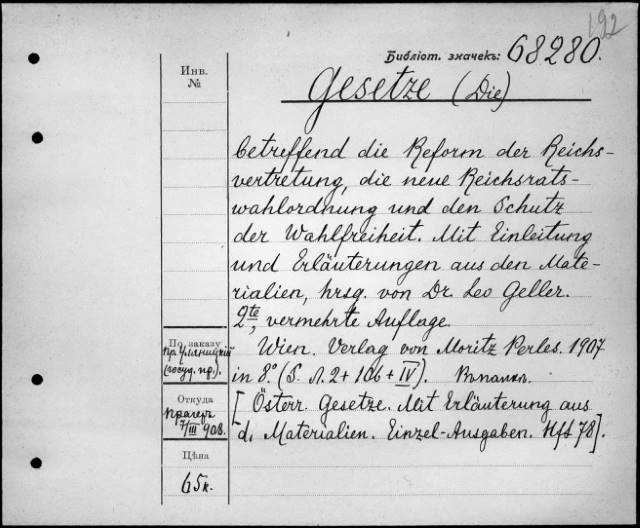 192
Библіот. значекъ: 68280.
Инв.
№
Gesetze (Die)
betreffend die Reform der Reichs-
vertretung, die neue Reichsrats-
wahlordnung und den Schutz
der Wahlfreiheit. Mit Einleitung
und Erläuterungen aus den Mate-
rialien, hrsg. von Dr. Leo Geller.
2te, vermehrte Auflage
Wien. Verlag von Moritz Perles. 1907
in 8.° (S. 2 + 106 + IV).
[Österr. Gesetze. Mit Erläuterung aus
d. Materialien. Einzel-Ausgaben. Hft 78].
По заказу
пр Уляницкій
(госуд. пр.).
Откуда
Прагеръ
7/III 908.
Цѣна
65 к.